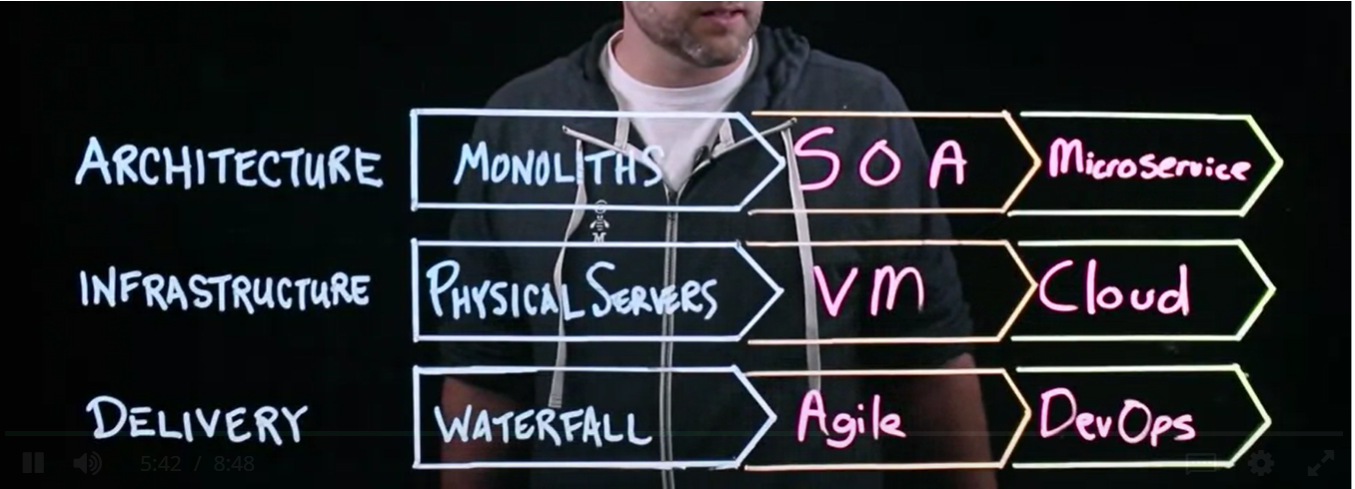 ARCHITECTURE MONOLITHS SOA Microservice
INFRASTRUCTURE PHYSICAL SERVERS VM Cloud
DELIVERY WATERFALL Agile DevOps
5:42 / 8:48